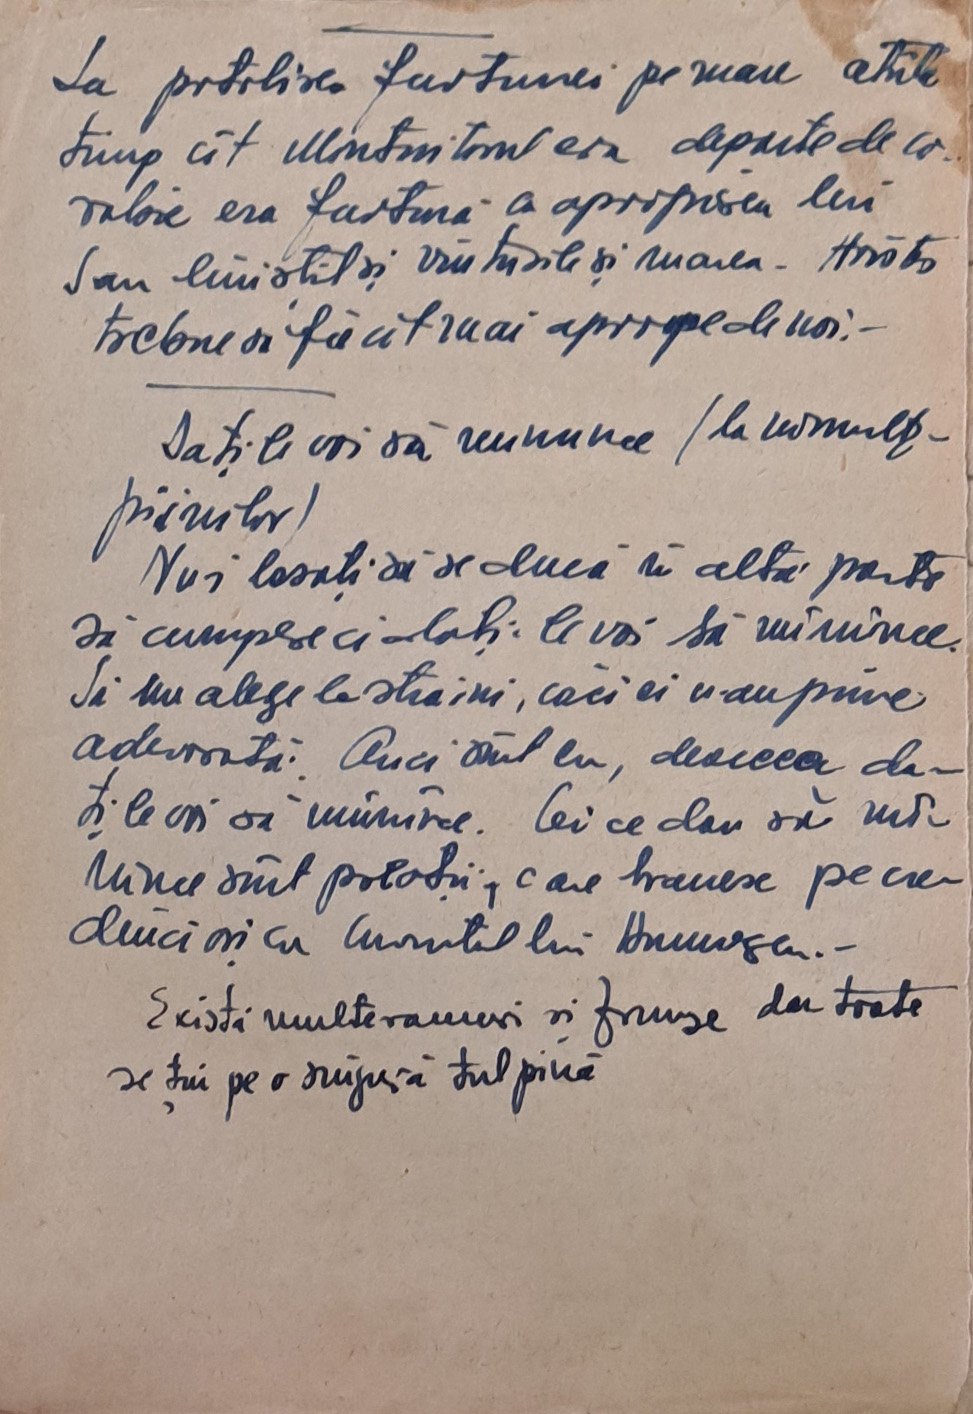 La potolirea furtunei pe mare atîta
timp cît Mîntuitorul era departe de co-
rabie era furtună cu apropierea lui
S-au liniștit și vînturile și marea. Hristos
trebue să fie cît mai aproape de noi.-
Dați-le voi să mînînce (la înmulț-
pîinilor)
Nu-i lăsați să se ducă în altă parte
să cumpere ci dați-le voi să mînînce.
Să nu alege la străini, căci ei n-au pîine
adevărată. Aici sînt eu, deaceea da-
ți-le voi să mînînce. Cei ce dau să mî-
nînce sînt preoții, care hranesc pe cre-
dincioși cu Cuvîntul lui Dumnezeu.-
Există multe ramuri și frunze dar toate
se țin pe o singură tulpină